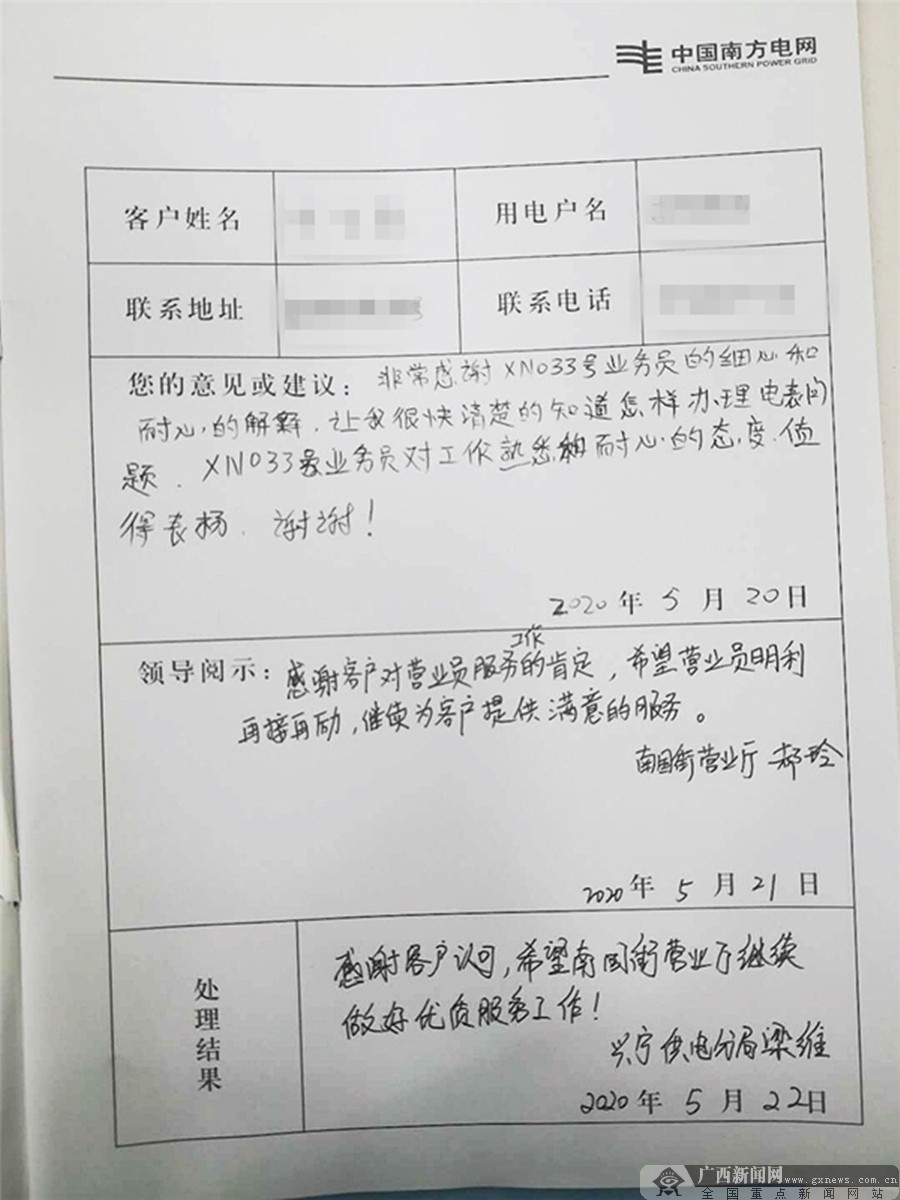 中国南方电网
CHINA SOUTHERN POWER GRID
客户姓名 用电户名
联系地址 联系电话
您的意见或建议：非常感谢XN033号业务员的细心和
耐心的解释.让我很快清楚的知道怎样办理电表问
题.XN033号业务员对工作熟悉和耐心的态度.值
得表扬.谢谢!
2020年5月20日
工作
领导阅示：感谢客户对营业员服务的肯定，希望营业员明利
再接再励，继续为客户提供满意的服务。
南国街营业厅 郝玲
2020年5月21日
处理结果
感谢客户认可，希望南国街营业厅继续
做好优质服务工作！
兴宁供电分局梁维
2020年5月22日
广西新闻网
www.gxnews.com.cn
全国重点新闻网站